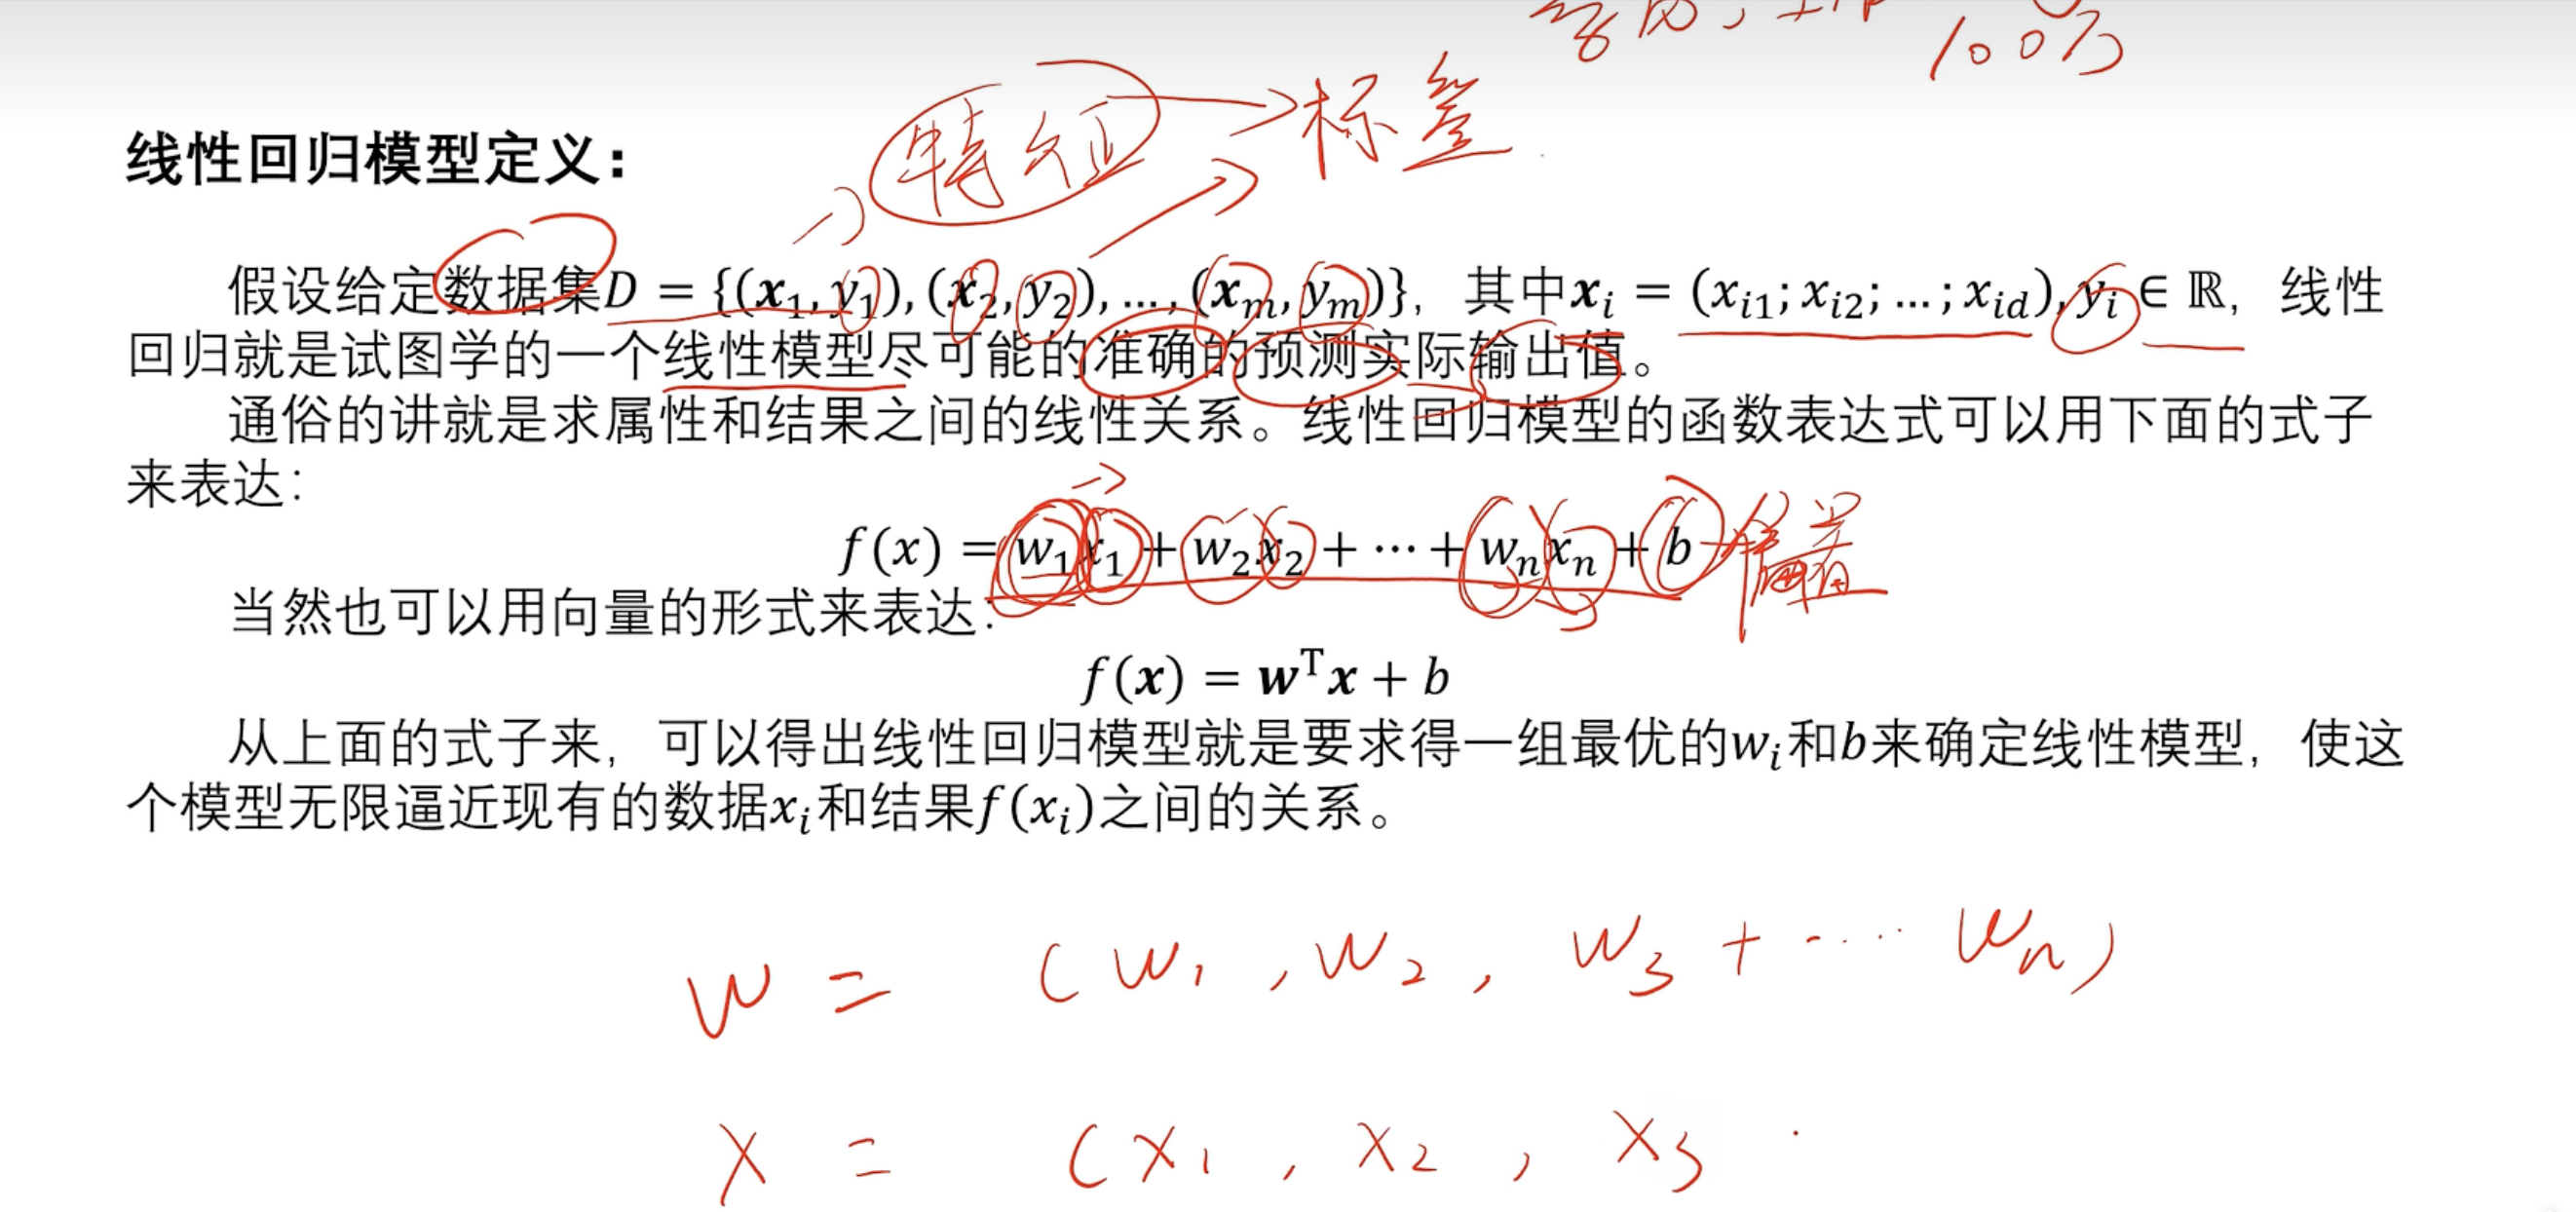 100万
特征 → 标签
线性回归模型定义：
假设给定数据集D = {(x₁, y₁), (x₂, y₂), … , (xₘ, yₘ)}，其中xᵢ = (xᵢ₁; xᵢ₂; … ; xᵢd), yᵢ ∈ ℝ，线性
回归就是试图学的一个线性模型尽可能的准确的预测实际输出值。
通俗的讲就是求属性和结果之间的线性关系。线性回归模型的函数表达式可以用下面的式子
来表达：
f(x) = w₁x₁ + w₂x₂ + ⋯ + wₙxₙ + b 偏置
当然也可以用向量的形式来表达：
f(x) = wᵀx + b
从上面的式子来，可以得出线性回归模型就是要求得一组最优的wᵢ和b来确定线性模型，使这
个模型无限逼近现有的数据xᵢ和结果f(xᵢ)之间的关系。
W = (W₁ , W₂ , W₃ + ····· Wₙ)
X = (X₁ , X₂ , X₃ ·